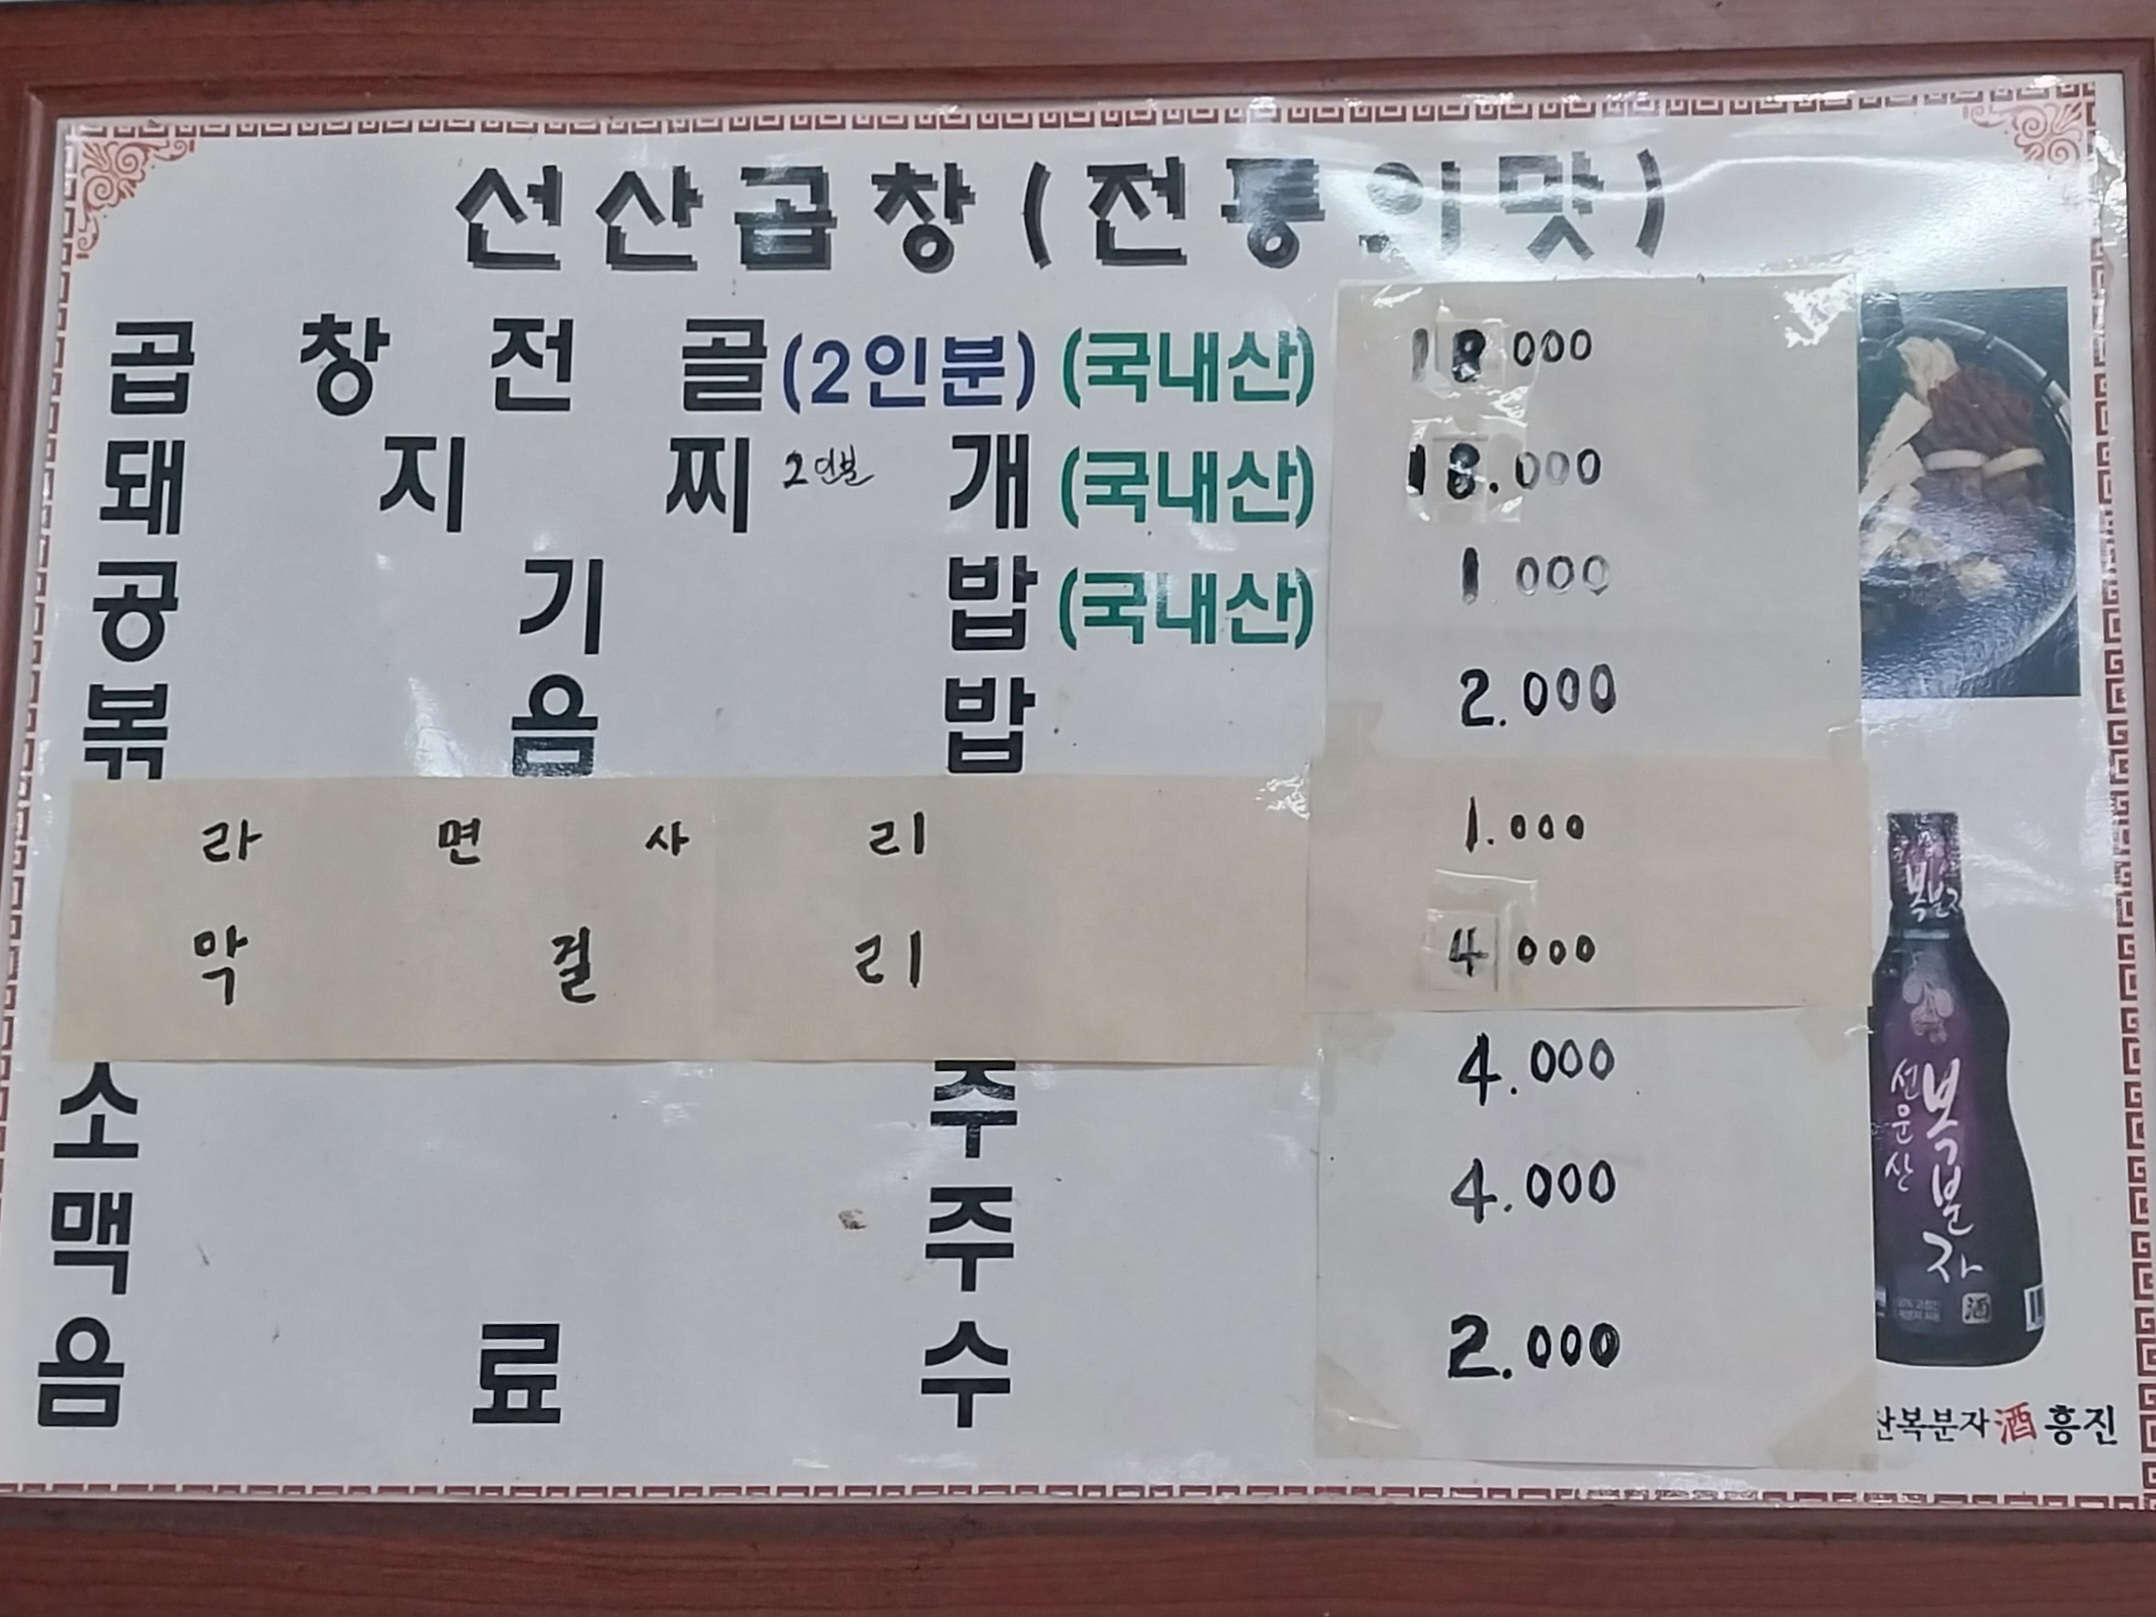 선산곱창(전통의맛)
곱창전골(2인분) (국내산) 18000
돼지찌개 2인분 (국내산) 18.000
공기밥 (국내산) 1000
볶음밥 2.000
라면사리 1.000
막걸리 4000
소주 4.000
맥주 4.000
음료수 2.000
복분자
선운산
복분자
酒
산복분자酒 흥진